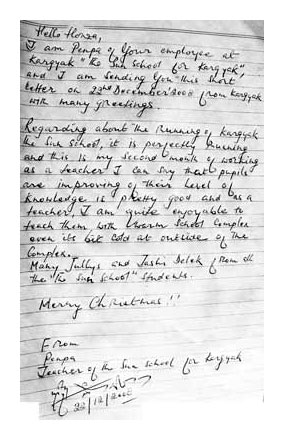 Hello Honza,
I am Penpa of Your employee at
Kargyak "the Sun School for Kargyak",
and I am Sending You this short
letter on 22nd December 2008 from Kargyak
with many greetings.
Regarding about the Running of Kargyak
the Sun School, it is perfectly running
and this is my Second month of working
as a teacher I can Say that pupils
are improving of their level of
Knowledge is pretty good and as a
teacher, I am quite enjoyable to
teach them with warm School Complex
even its bit Cold at outside of the
Complex.
Many Jullys and Tashi Delek from all
the "the Sun School" Students.
Merry Christmas!!
From
Penpa
Teacher of the Sun School for Kargyak